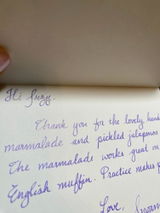 Hi Suzy,
Thank you for the lovely hand
marmalade and pickled jalapenos
The marmalade works great on
English muffin. Practice makes p
Love,